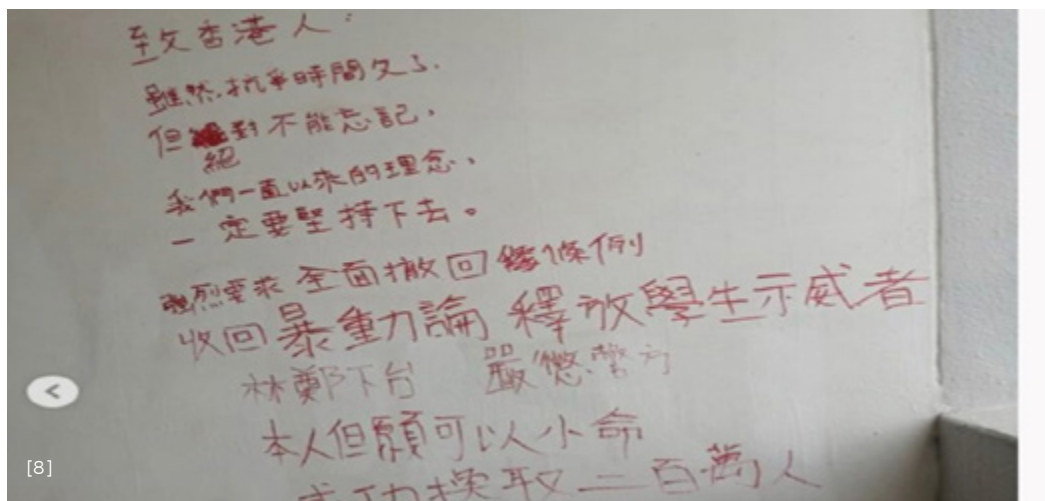 致香港人：
雖然抗爭時間久了.
但絕對不能忘記,
我們一直以來的理念,
一定要堅持下去。
強烈要求 全面撤回條例
收回暴動論 釋放學生示威者
林鄭下台 嚴懲警方
本人但願可以小命
成功換取二百萬人
[8]